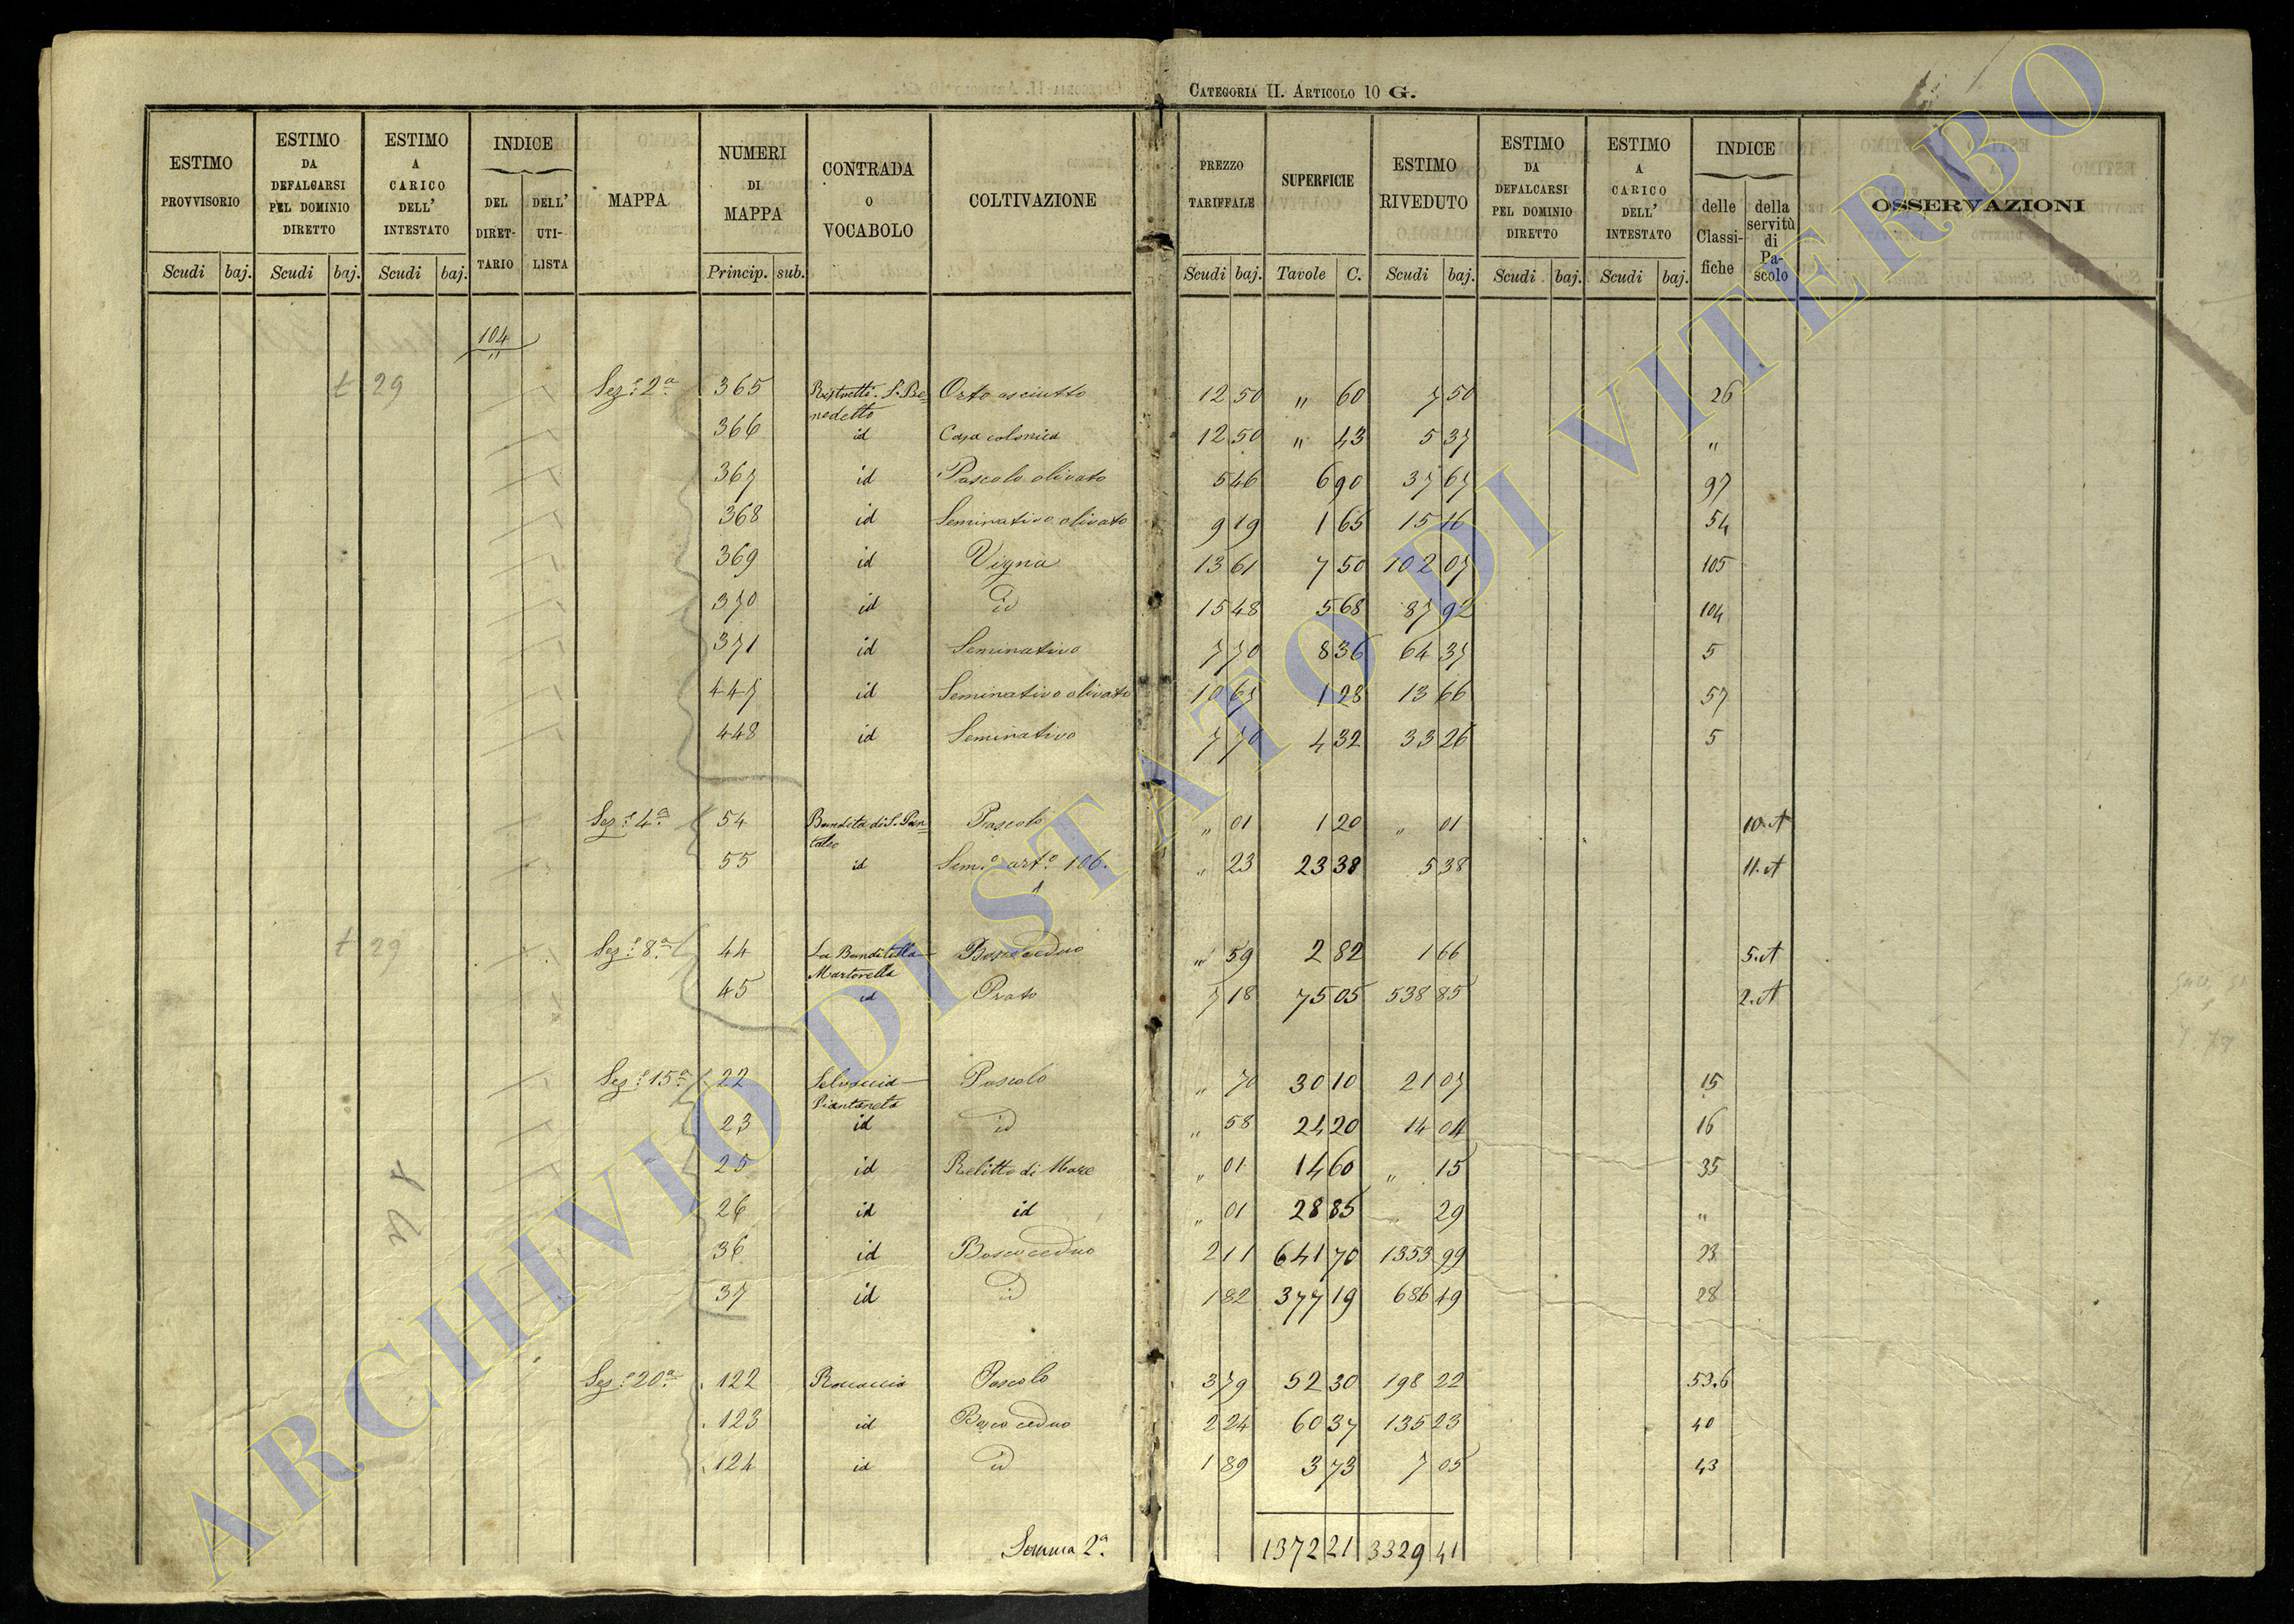 CATEGORIA II. ARTICOLO 10 G.
ESTIMO PROVVISORIO
ESTIMO DA DEFALCARSI PEL DOMINIO DIRETTO
ESTIMO A CARICO DELL' INTESTATO
INDICE
DEL DIRET-TARIO
DELL' UTI-LISTA
MAPPA
NUMERI DI MAPPA
CONTRADA O VOCABOLO
COLTIVAZIONE
PREZZO TARIFFALE
SUPERFICIE
ESTIMO RIVEDUTO
ESTIMO DA DEFALCARSI PEL DOMINIO DIRETTO
ESTIMO A CARICO DELL' INTESTATO
INDICE
delle Classi-fiche
della servitù di Pa-scolo
OSSERVAZIONI
Scudi baj. Scudi baj. Scudi baj. Princip. sub. Scudi baj. Tavole C. Scudi baj. Scudi baj. Scudi baj.
104
"
t 29 Sez.e 2a 365 Ristretti. S. Be= Orto asciutto 12 50 " 60 7 50 26
nedetto
366 id Casa colonica 12 50 " 43 5 37 "
367 id Pascolo olivato 5 46 6 90 37 67 97
368 id Seminativo olivato 9 19 1 65 15 16 54
369 id Vigna 13 61 7 50 102 07 105
370 id id 15 48 5 68 87 92 104
371 id Seminativo 7 70 8 36 64 37 5
447 id Seminativo olivato 10 67 1 28 13 66 57
448 id Seminativo 7 70 4 32 33 26 5
Sez.e 4a 54 Bandita di S. Pan= Pascolo " 01 1 20 " 01 10. A
taleo
55 id Sem.o art.o 106. " 23 23 38 5 38 11. A
t 29 Sez.e 8a 44 La Banditella Bosco ceduo " 59 2 82 1 66 5. A
Martorella
45 id Prato 7 18 75 05 538 85 2. A
Sez.e 15a 22 Selvaccia Pascolo " 70 30 10 21 07 15
Piantaneta
23 id id " 58 24 20 14 04 16
25 id Relitto di Mare " 01 14 60 " 15 35
26 id id " 01 28 85 29 "
36 id Bosco ceduo 2 11 641 70 1353 99 23
37 id id 1 82 377 19 686 49 28
Sez.e 20a 122 Roccaccia Pascolo 3 79 52 30 198 22 53.6
123 id Bosco ceduo 2 24 60 37 135 23 40
124 id id 1 89 3 73 7 05 43
Somma 2a 1372 21 3329 41
ARCHIVIO DI STATO DI VITERBO